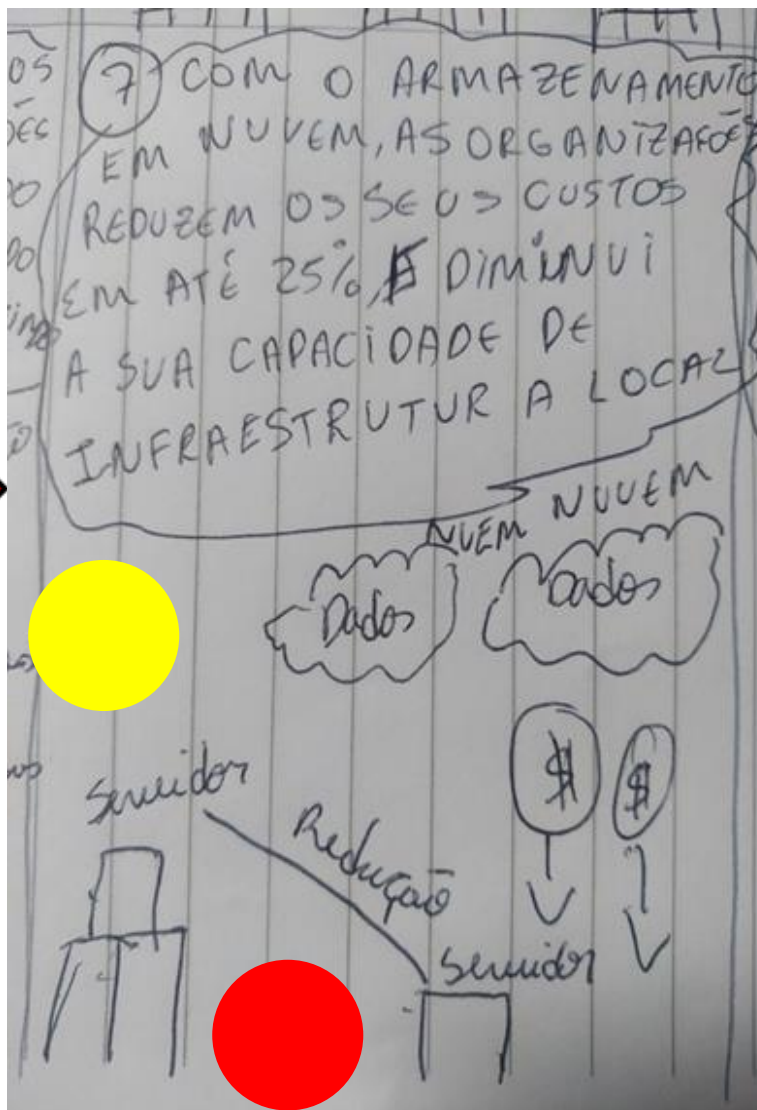 7 COM O ARMAZENAMENTO
EM NUVEM, AS ORGANIZAÇÕES
REDUZEM OS SEUS CUSTOS
EM ATÉ 25%, E DIMINUI
A SUA CAPACIDADE DE
INFRAESTRUTURA LOCAL
NUEM NUVEM
Dados Dados
$ $
Servidor
Redução
Servidor